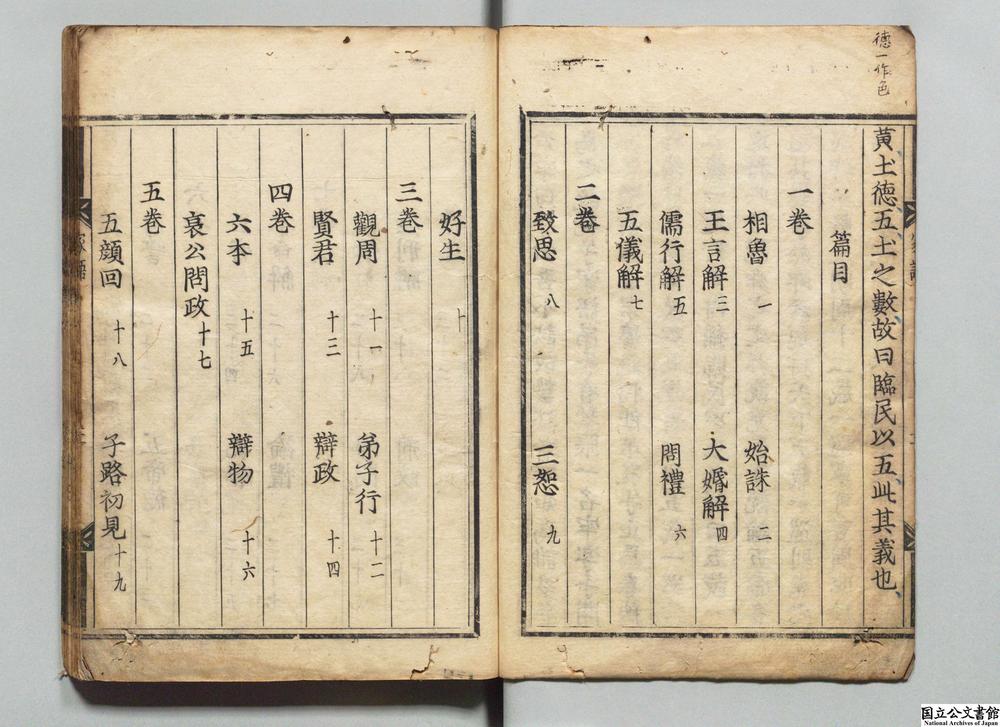 德一作色
黃土德五土之數故曰臨民以五此其義也
篇目
一卷
相魯 一 始誅 二
王言解 三 大婚解 四
儒行解 五 問禮 六
五儀解 七
二卷
致思 八 三恕 九
好生 十
三卷
觀周 十一 弟子行 十二
賢君 十三 辯政 十四
四卷
六本 十五 辯物 十六
哀公問政 十七
五卷
五顔回 十八 子路初見 十九
家語
国立公文書館
National Archives of Japan